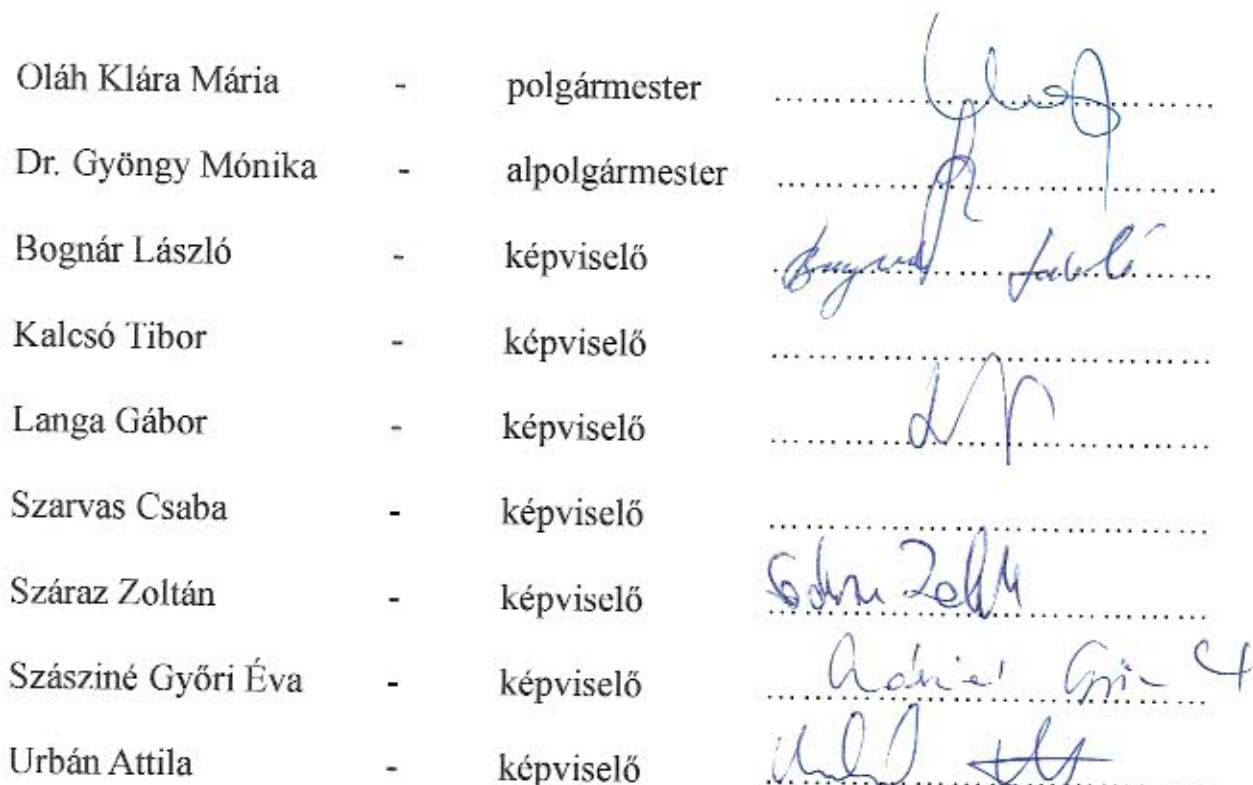 Oláh Klára Mária - polgármester
Dr. Gyöngy Mónika - alpolgármester
Bognár László - képviselő
Kalcsó Tibor - képviselő
Langa Gábor - képviselő
Szarvas Csaba - képviselő
Száraz Zoltán - képviselő
Szásziné Győri Éva - képviselő
Urbán Attila - képviselő